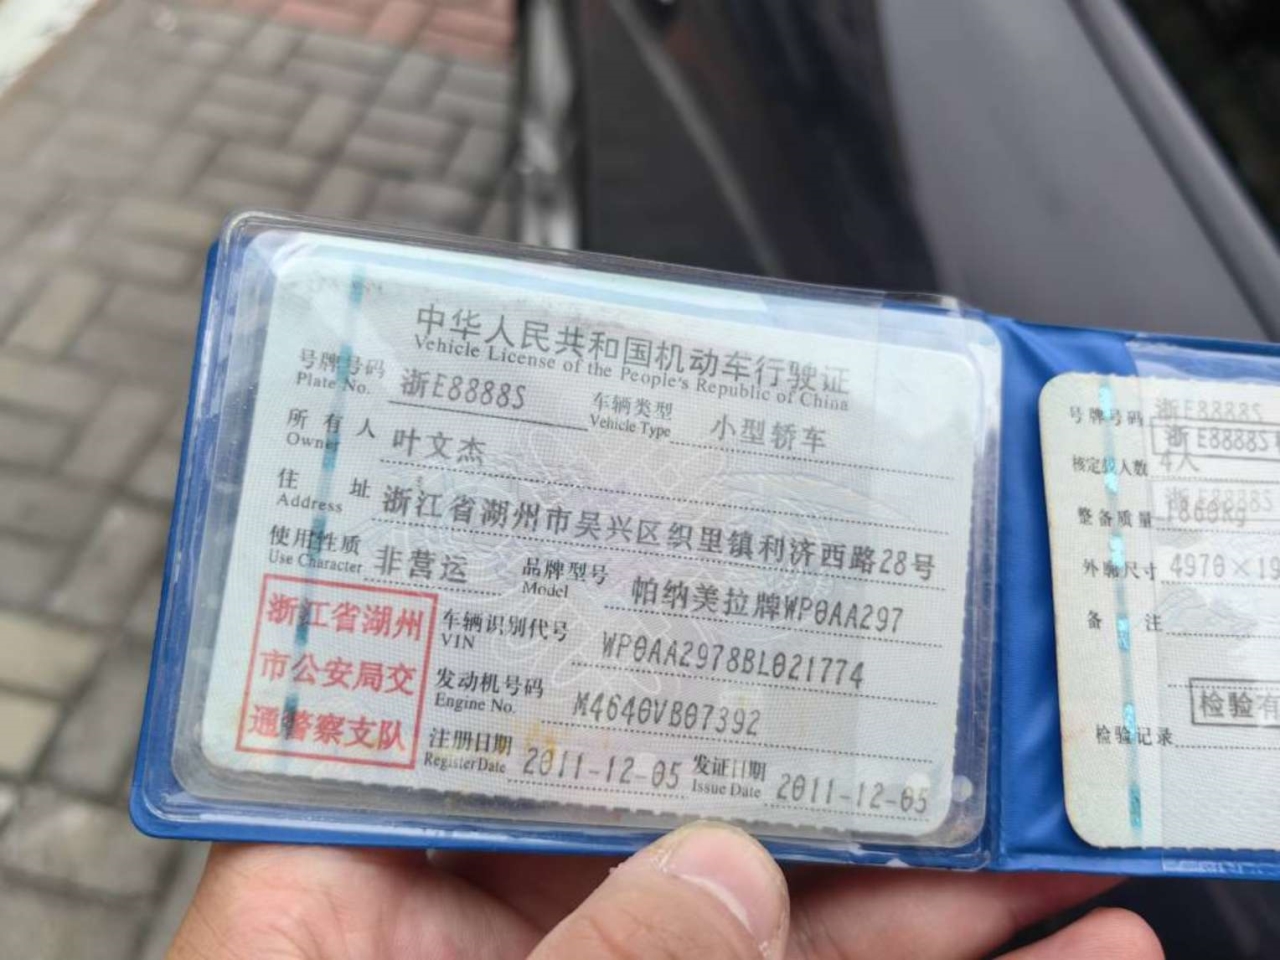 中华人民共和国机动车行驶证
Vehicle License of the People's Republic of China
号牌号码 浙E8888S 车辆类型 小型轿车
Plate No. Vehicle Type
所有人 叶文杰
Owner
住址 浙江省湖州市吴兴区织里镇利济西路28号
Address
使用性质 非营运 品牌型号 帕纳美拉牌WP0AA297
Use Character Model
浙江省湖州
市公安局交
通警察支队
车辆识别代号 WP0AA2978BL021774
VIN
发动机号码 M4640VB07392
Engine No.
注册日期 2011-12-05 发证日期 2011-12-05
Register Date Issue Date
号牌号码 浙E8888S
浙E8888S
核定载人数 4人
浙E8888S
整备质量 1860kg
外廓尺寸 4970×19
备注
检验有
检验记录